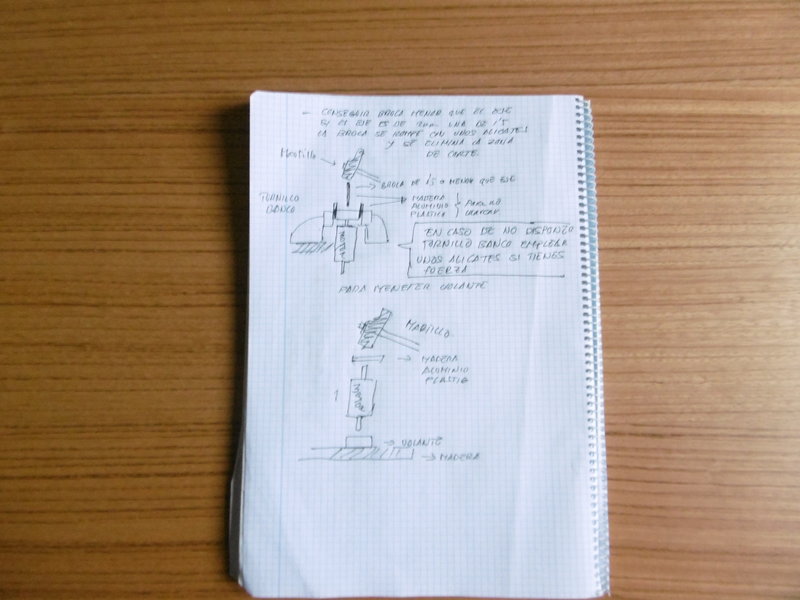 - CONSEGUIR BROCA MENOR QUE EL EJE
SI EL EJE ES DE 2mm UNA DE 1'5
LA BROCA SE ROMPE CON UNOS ALICATES
Y SE ELIMINA LA ZONA
DE CORTE.
Martillo
BROCA DE 1'5 O MENOR QUE EJE
TORNILLO
BANCO
MADERA
ALUMINIO
PLASTICO
PARA NO
MOTOR
EN CASO DE NO DISPONER
TORNILLO BANCO EMPLEAR
UNOS ALICATES SI TIENES
FUERZA
PARA METER VOLANTE
MARTILLO
MADERA
ALUMINIO
PLASTICO
MOTOR
VOLANTE
MADERA